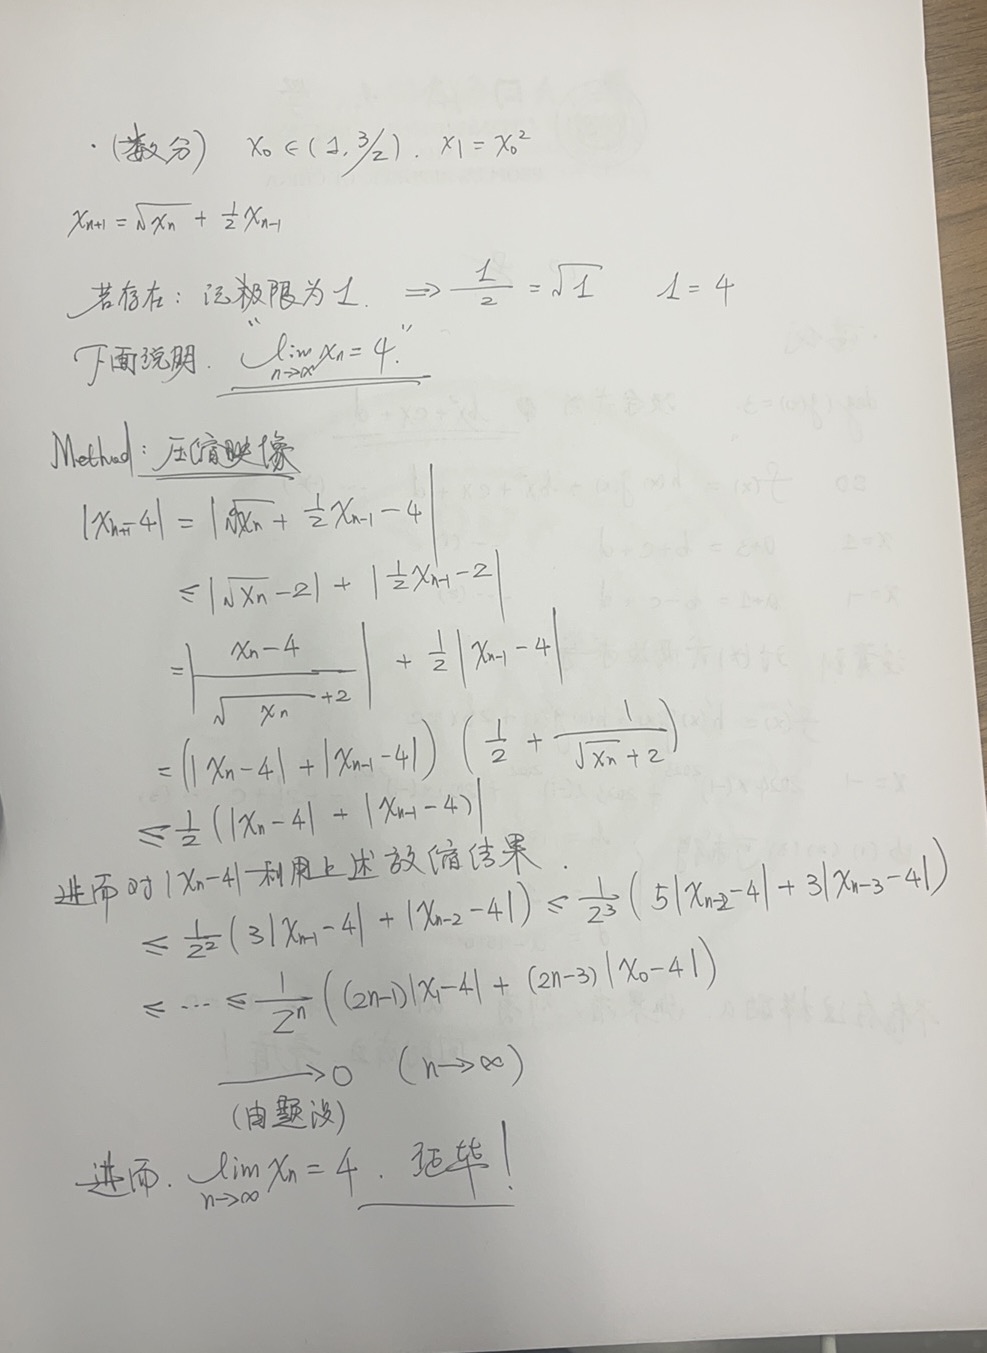 ·(数分) x₀∈(1, 3/2). x₁=x₀²
xₙ₊₁=√xₙ + ½xₙ₋₁
若存在: 记极限为1. ⇒ 1/2 = √1  1=4
下面说明. "lim_{n→∞} xₙ = 4."
Method: 压缩映像
|xₙ₊₁-4| = |√xₙ + ½xₙ₋₁ - 4|
≤ |√xₙ - 2| + |½xₙ₋₁ - 2|
= |(xₙ-4)/(√xₙ + 2)| + ½|xₙ₋₁ - 4|
= (|xₙ-4| + |xₙ₋₁-4|) (½ + 1/(√xₙ + 2))
≤ ½ (|xₙ-4| + |xₙ₋₁-4)|
进而对|xₙ-4|利用上述放缩结果.
≤ 1/2² (3|xₙ₋₁-4| + |xₙ₋₂-4|) ≤ 1/2³ (5|xₙ₋₂-4| + 3|xₙ₋₃-4|)
≤ ··· ≤ 1/2ⁿ ((2n-1)|x₁-4| + (2n-3)|x₀-4|)
→ 0 (n→∞)
(由题设)
进而. lim_{n→∞} xₙ = 4. 证毕!